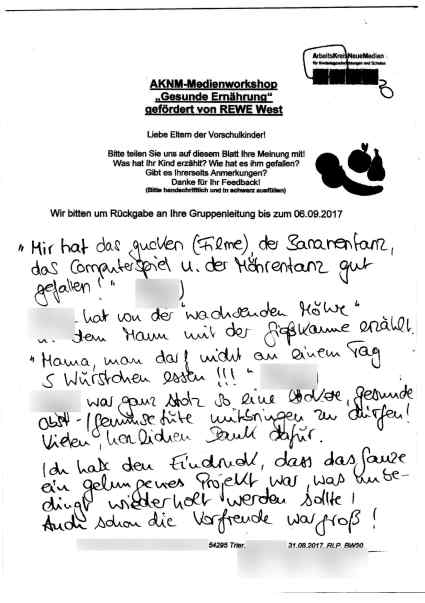 ArbeitsKreisNeueMedien
für Kindertageseinrichtungen und Schulen
AKNM-Medienworkshop
„Gesunde Ernährung"
gefördert von REWE West
Liebe Eltern der Vorschulkinder!
Bitte teilen Sie uns auf diesem Blatt Ihre Meinung mit!
Was hat Ihr Kind erzählt? Wie hat es ihm gefallen?
Gibt es Ihrerseits Anmerkungen?
Danke für Ihr Feedback!
(Bitte handschriftlich und in schwarz ausfüllen)
Wir bitten um Rückgabe an Ihre Gruppenleitung bis zum 06.09.2017
„Mir hat das gucken (Filme), der Bananentanz,
das Computerspiel u. der Möhrentanz gut
gefallen!"
hat von der "wachsenden Möhre"
u. dem Mann mit der Gießkanne erzählt.
"Mama, man darf nicht an einem Tag
5 Würstchen essen!!!"
war ganz stolz so eine leckere, gesunde
Obst-/Gemüsetüte mitbringen zu dürfen!
Vielen, herzlichen Dank dafür.
Ich hatte den Eindruck, dass das Ganze
ein gelungenes Projekt war, was unbe-
dingt wiederholt werden sollte!
Auch schon die Vorfreude war groß!
54295 Trier, 31.08.2017 RLP BW50